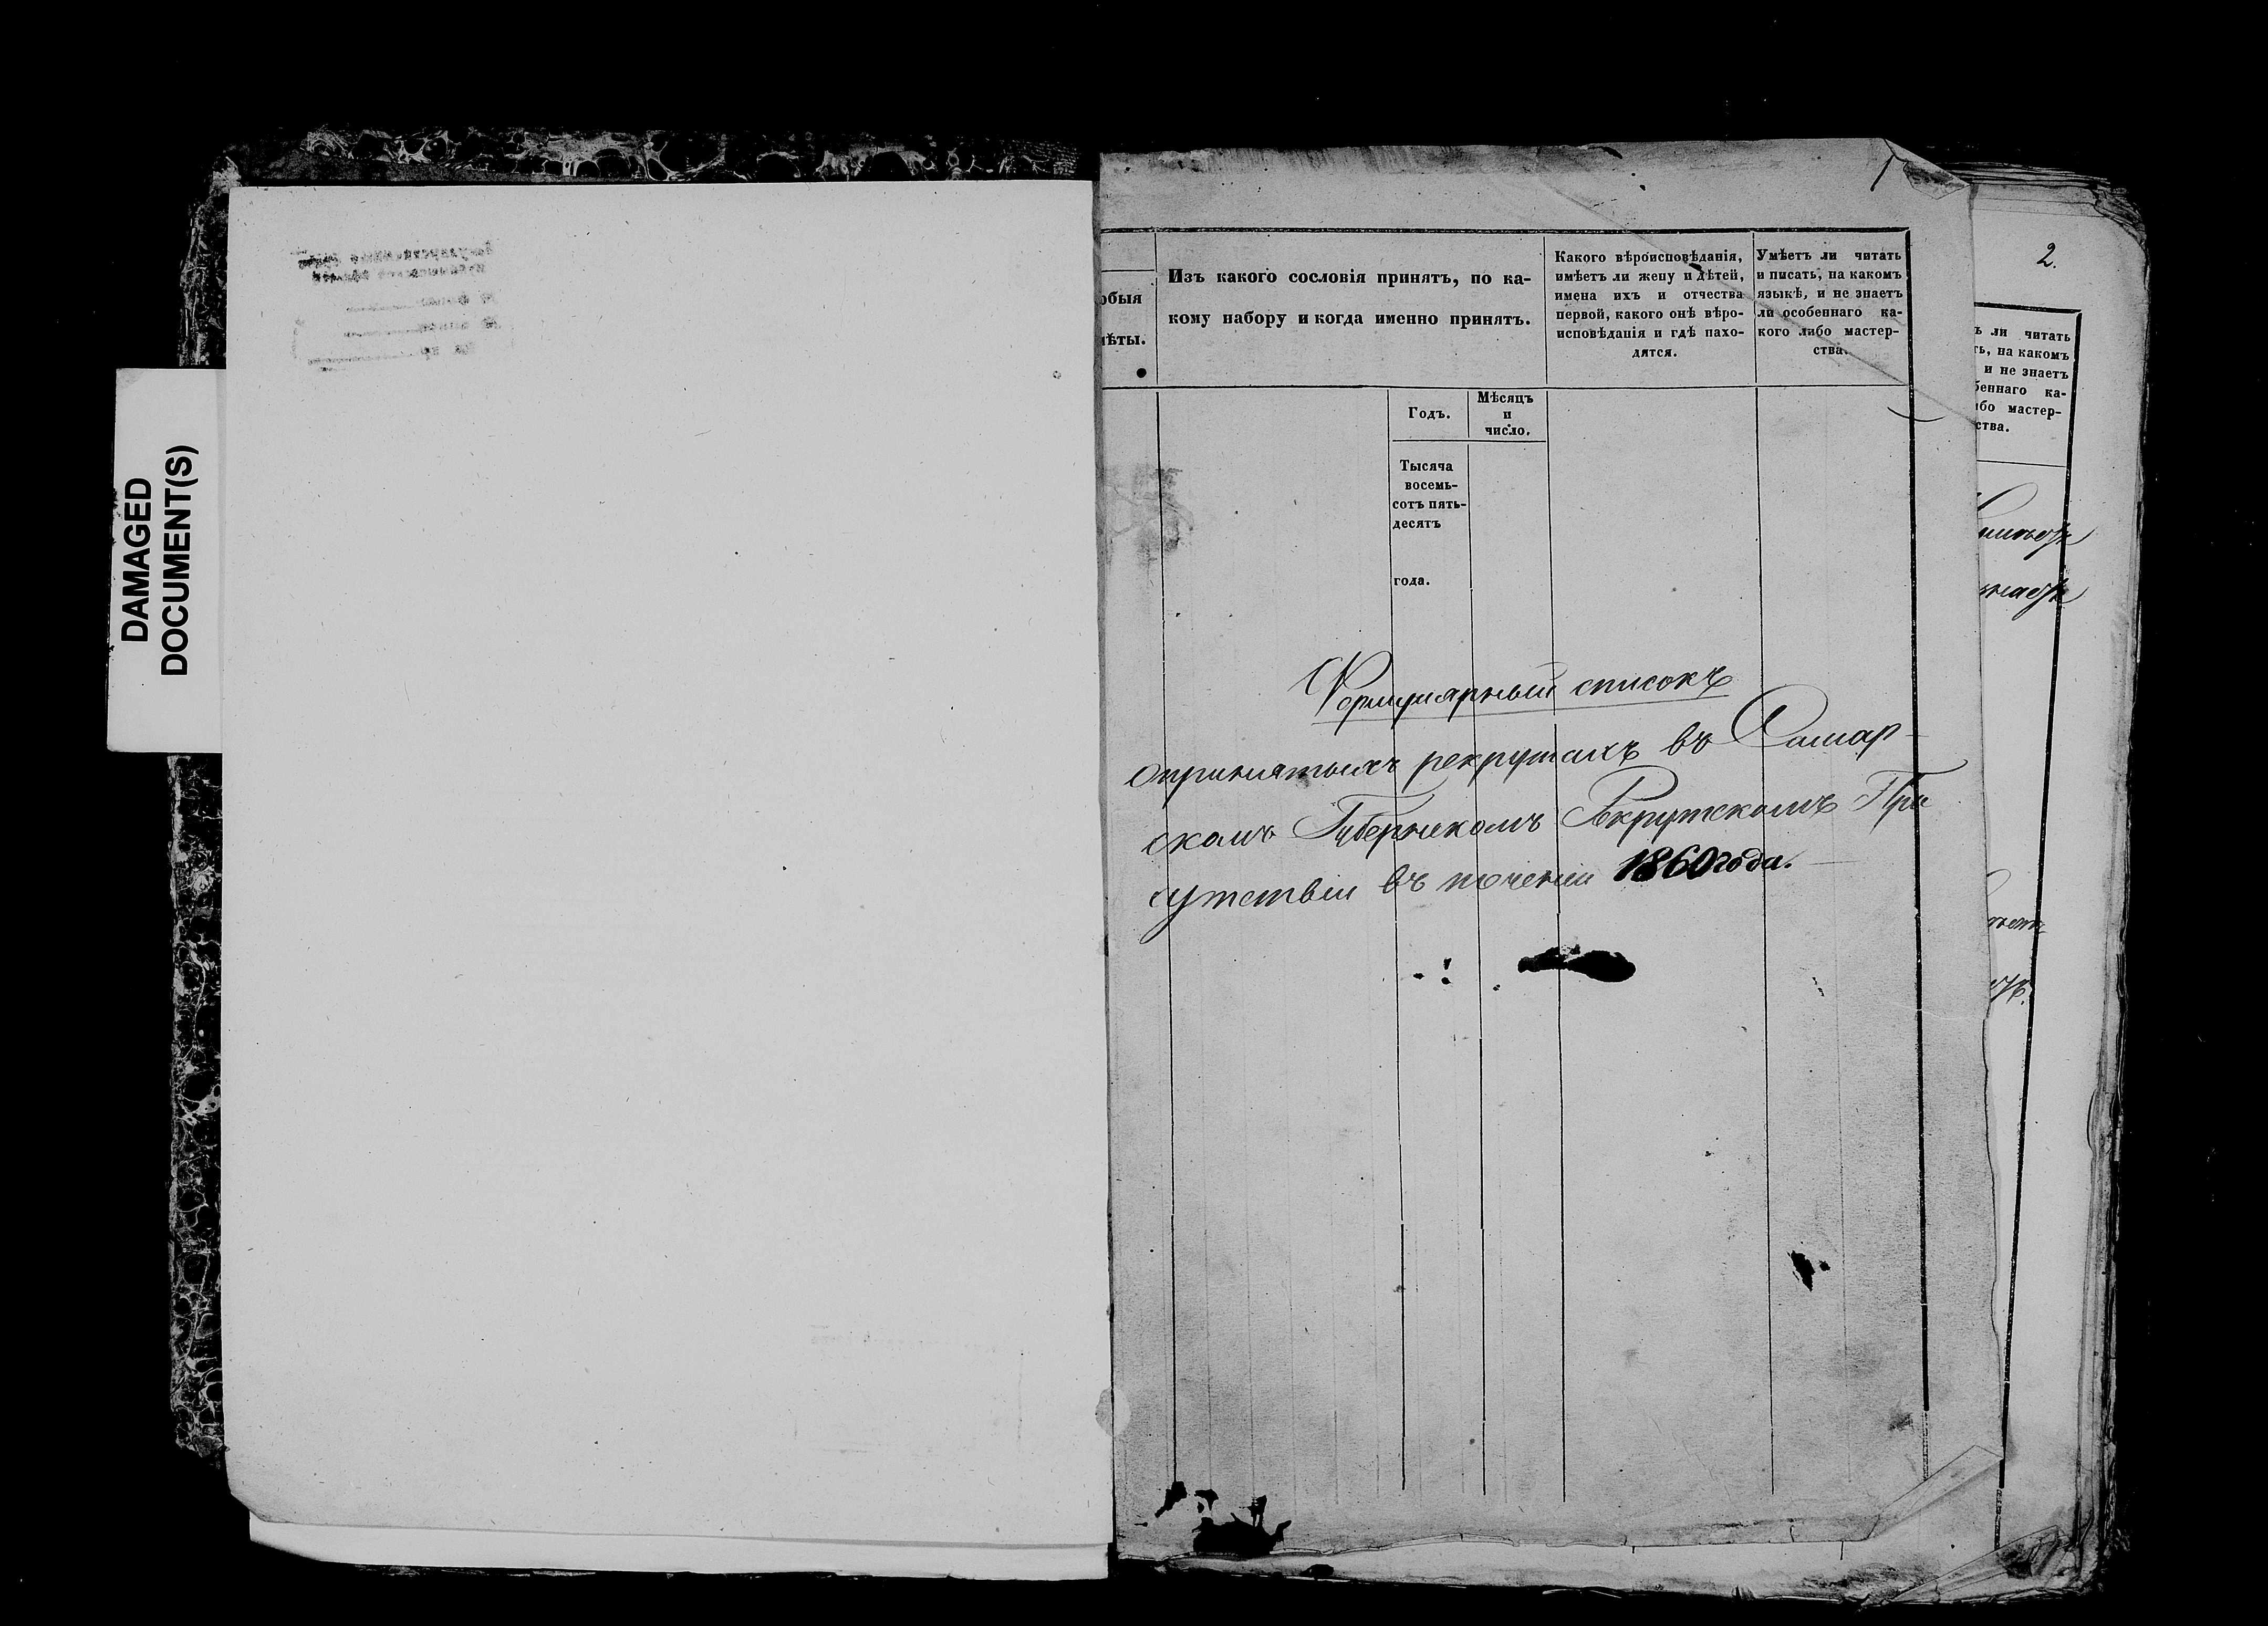 DAMAGED
DOCUMENT(S)
1
обыя
мѣты.
Изъ какого сословія принятъ, по ка-
кому набору и когда именно принятъ.
Какого вѣроисповѣданія,
имѣетъ ли жену и дѣтей,
имена ихъ и отчества
первой, какого онѣ вѣро-
исповѣданія и гдѣ нахо-
дятся.
Умѣетъ ли читать
и писать, на какомъ
языкѣ, и не знаетъ
ли особеннаго ка-
кого либо мастер-
ства.
Годъ.
Мѣсяцъ
и
число.
Тысяча
восемь-
сотъ пять-
десятъ
года.
Формулярный списокъ
опринятыхъ рекрутахъ въ Самар-
скомъ Губернскомъ Рекрутскомъ При
сутствіи въ теченіи 1860 года.
2.
ъ ли читать
ть, на какомъ
и не знаетъ
беннаго ка-
ибо мастер-
ства.